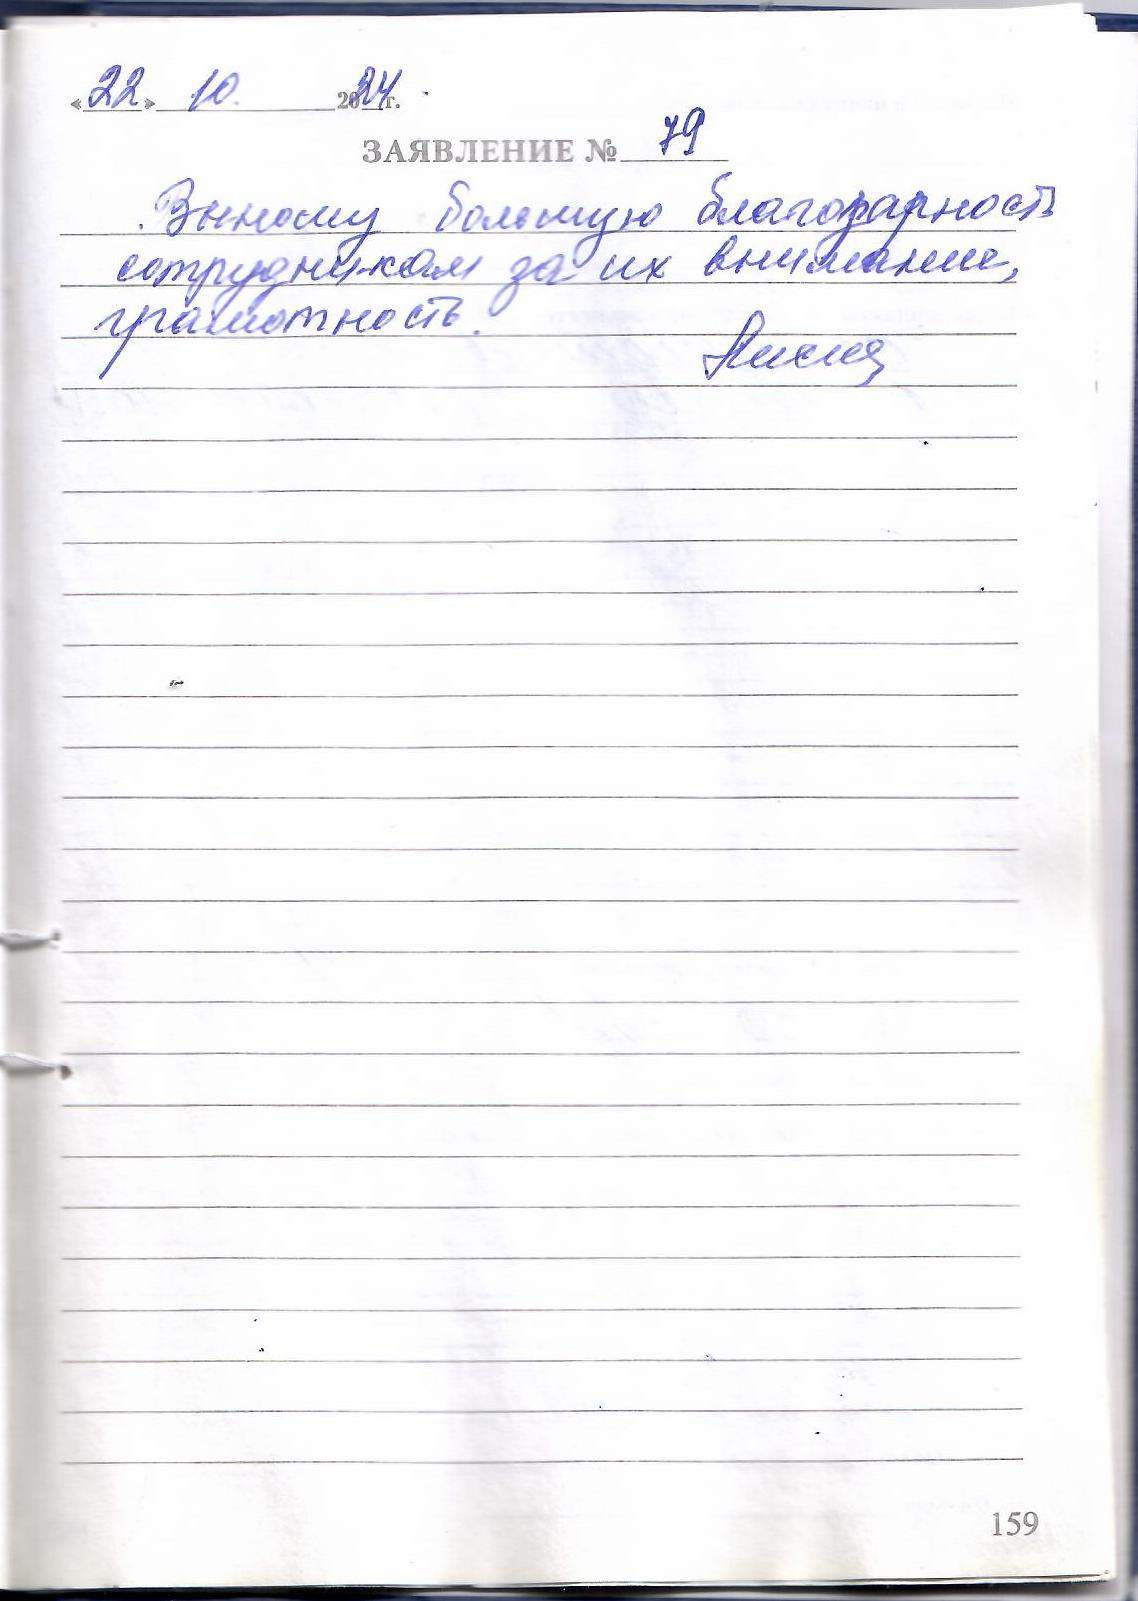 «22» 10. 2024 г.
ЗАЯВЛЕНИЕ № 79
Выношу большую благодарность
сотрудникам за их внимание,
грамотность.
159